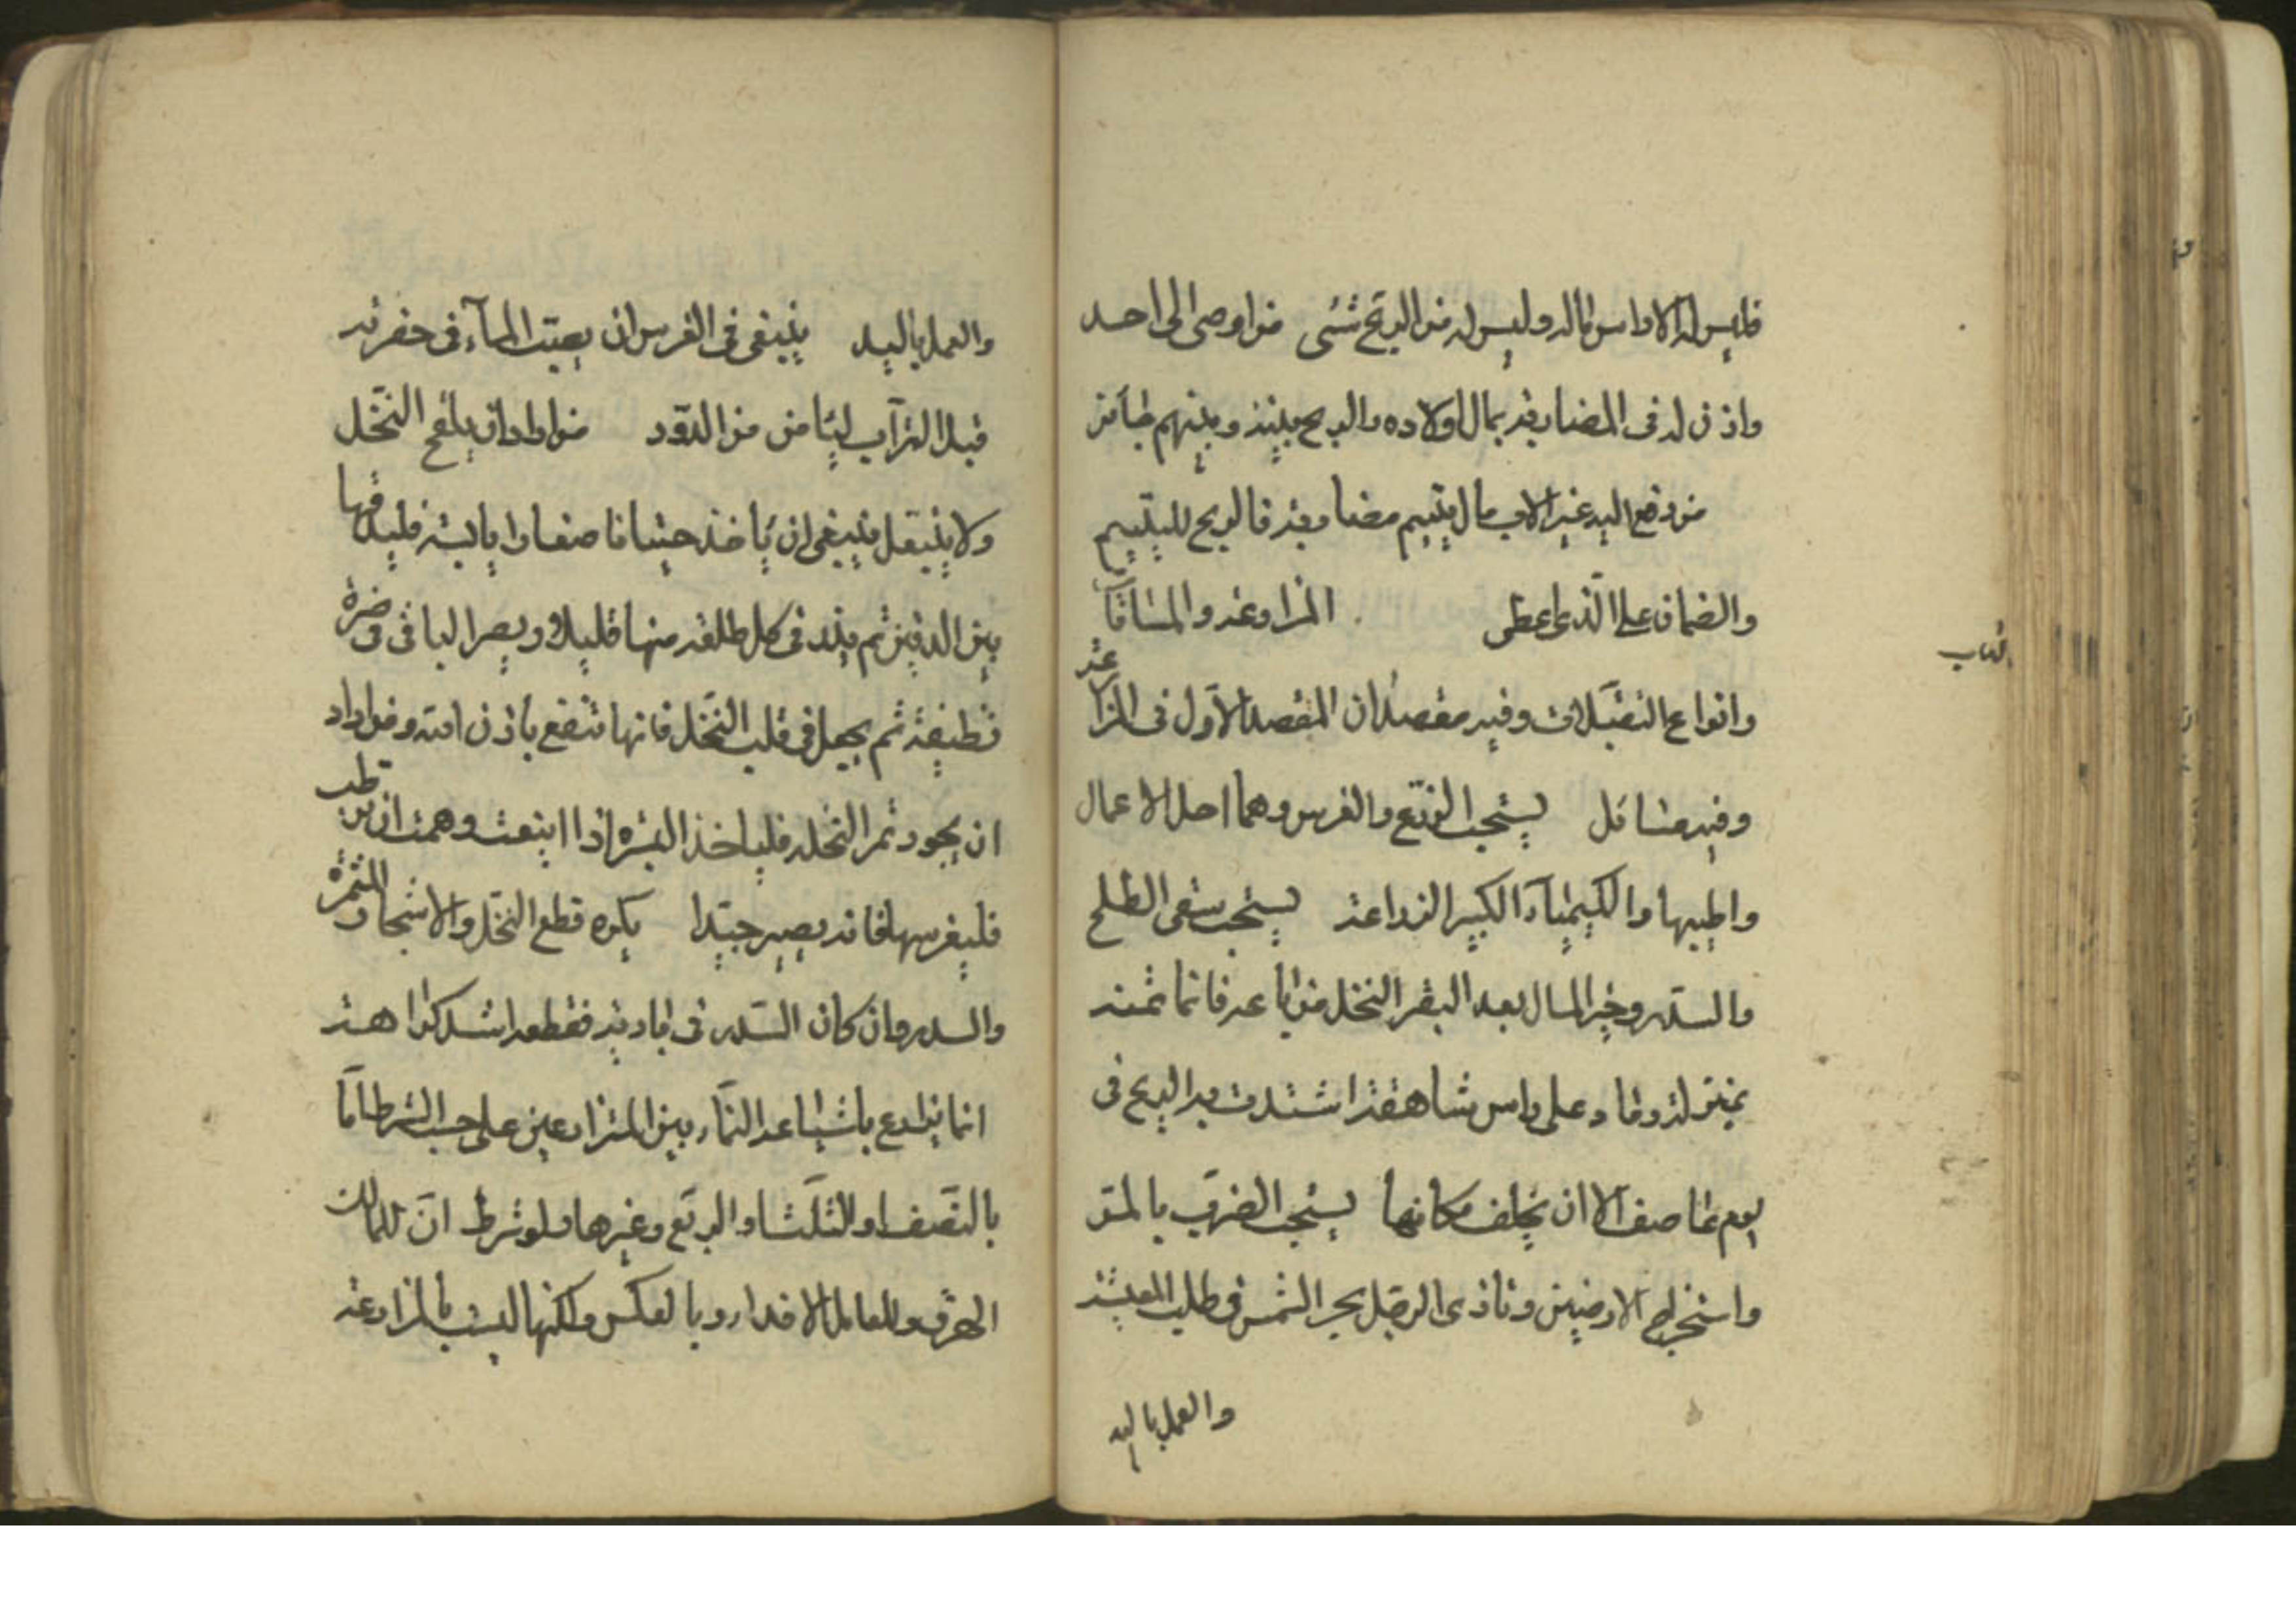 فليس له الا راس ماله وليس له من الربح شئى من اوصى الى احد
واذن له فى المضاربة بمال اولاده والربح بينه وبينهم جائز
من دفع اليه غير الاب مال يتيم مضاربة فالربح لليتيم
والضمان على الذى اعطى المزارعة والمساقاة
وانواع التقبلات وفيه مقصدان المقصد الاول فى المزارعة
وفيه مسائل يستحب الزرع والغرس وهما احل الاعمال
واطيبها والكيمياء الكبير الزراعة يستحب سقى الطلح
والسدر وخير المال بعد البقر النخل من باعه فانما ثمنه
بمنزلة رماد على راس شاهقة اشتدت به الريح فى
يوم عاصف الا ان يخلف مكانها يستحب الضرب بالمر
واستخراج الارضين وتاذى الرجل بحر الشمس فى طلب المعيشة
والعمل باليد
كتاب
والعمل باليد ينبغى فى الغرس ان يصب الماء فى حفرته
قبل التراب ليامن من الدود من اراد ان يلقح النخل
ولا ينبقل فينبغى ان ياخذ حيتانا صغارا يابسة فليدقها
بين الدقين ثم يذر فى كل طلعة منها قليلا ويصر الباقى فى صرة
نظيفة ثم يجعل فى قلب النخل فانها تنفع باذن الله ومن اراد
ان يجود ثمر النخلة فلياخذ البسرة اذا اينعت وهمت ان ترطب
فليغرسها فانه يصير جيدا يكره قطع النخل والاشجار المثمرة
والسدر وان كان السدر فى بادية فقطعه اشد كراهة
انما يزارع باشاعة النماء بين المتزارعين على حسب الشرط اما
بالنصف او الثلث او الربع وغيرها ولو شرط ان للمالك
الهرف وللعامل الافدار وبالعكس ولكنها ليست بالمزارعة